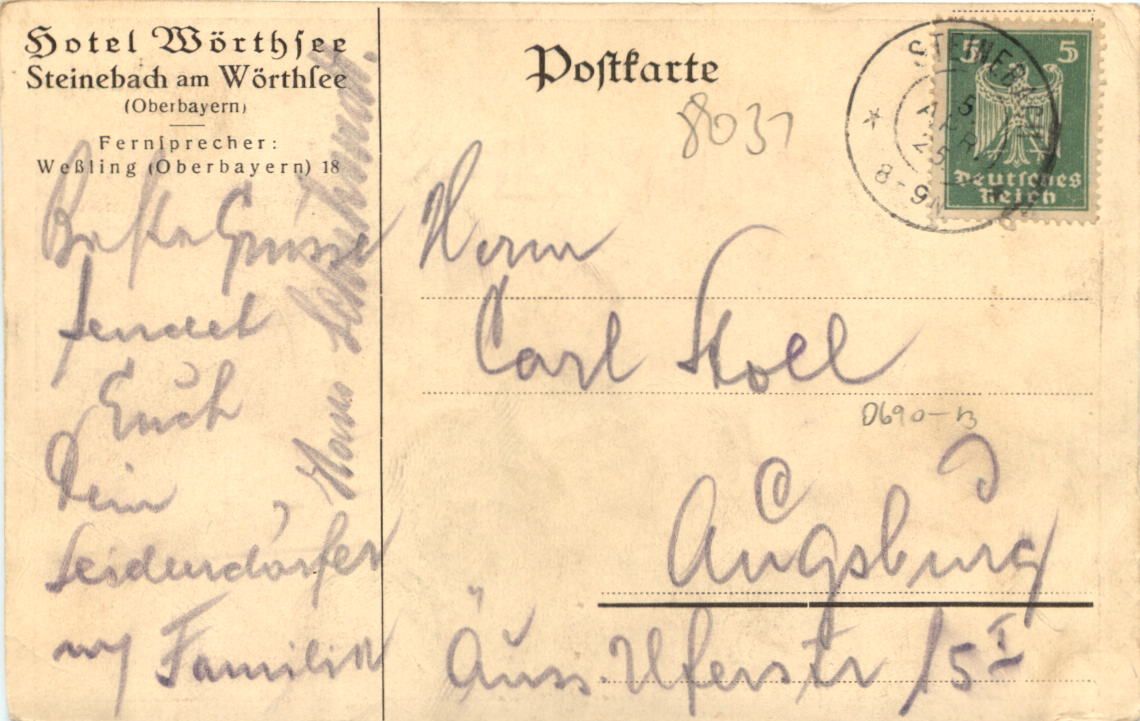 Hotel Wörthsee
Steinebach am Wörthsee
(Oberbayern)
Fernsprecher:
Weßling (Oberbayern) 18
Beste Grüsse
sendet
Euch
Dein
u/ Familie
Hans
Postkarte
8031
STEINEBACH
5
APR
25
8-9N
5 5
Deutsches
Reich
Herrn
Carl Stoll
0690-13
Augsburg
Äuss. Uferstr 15 I